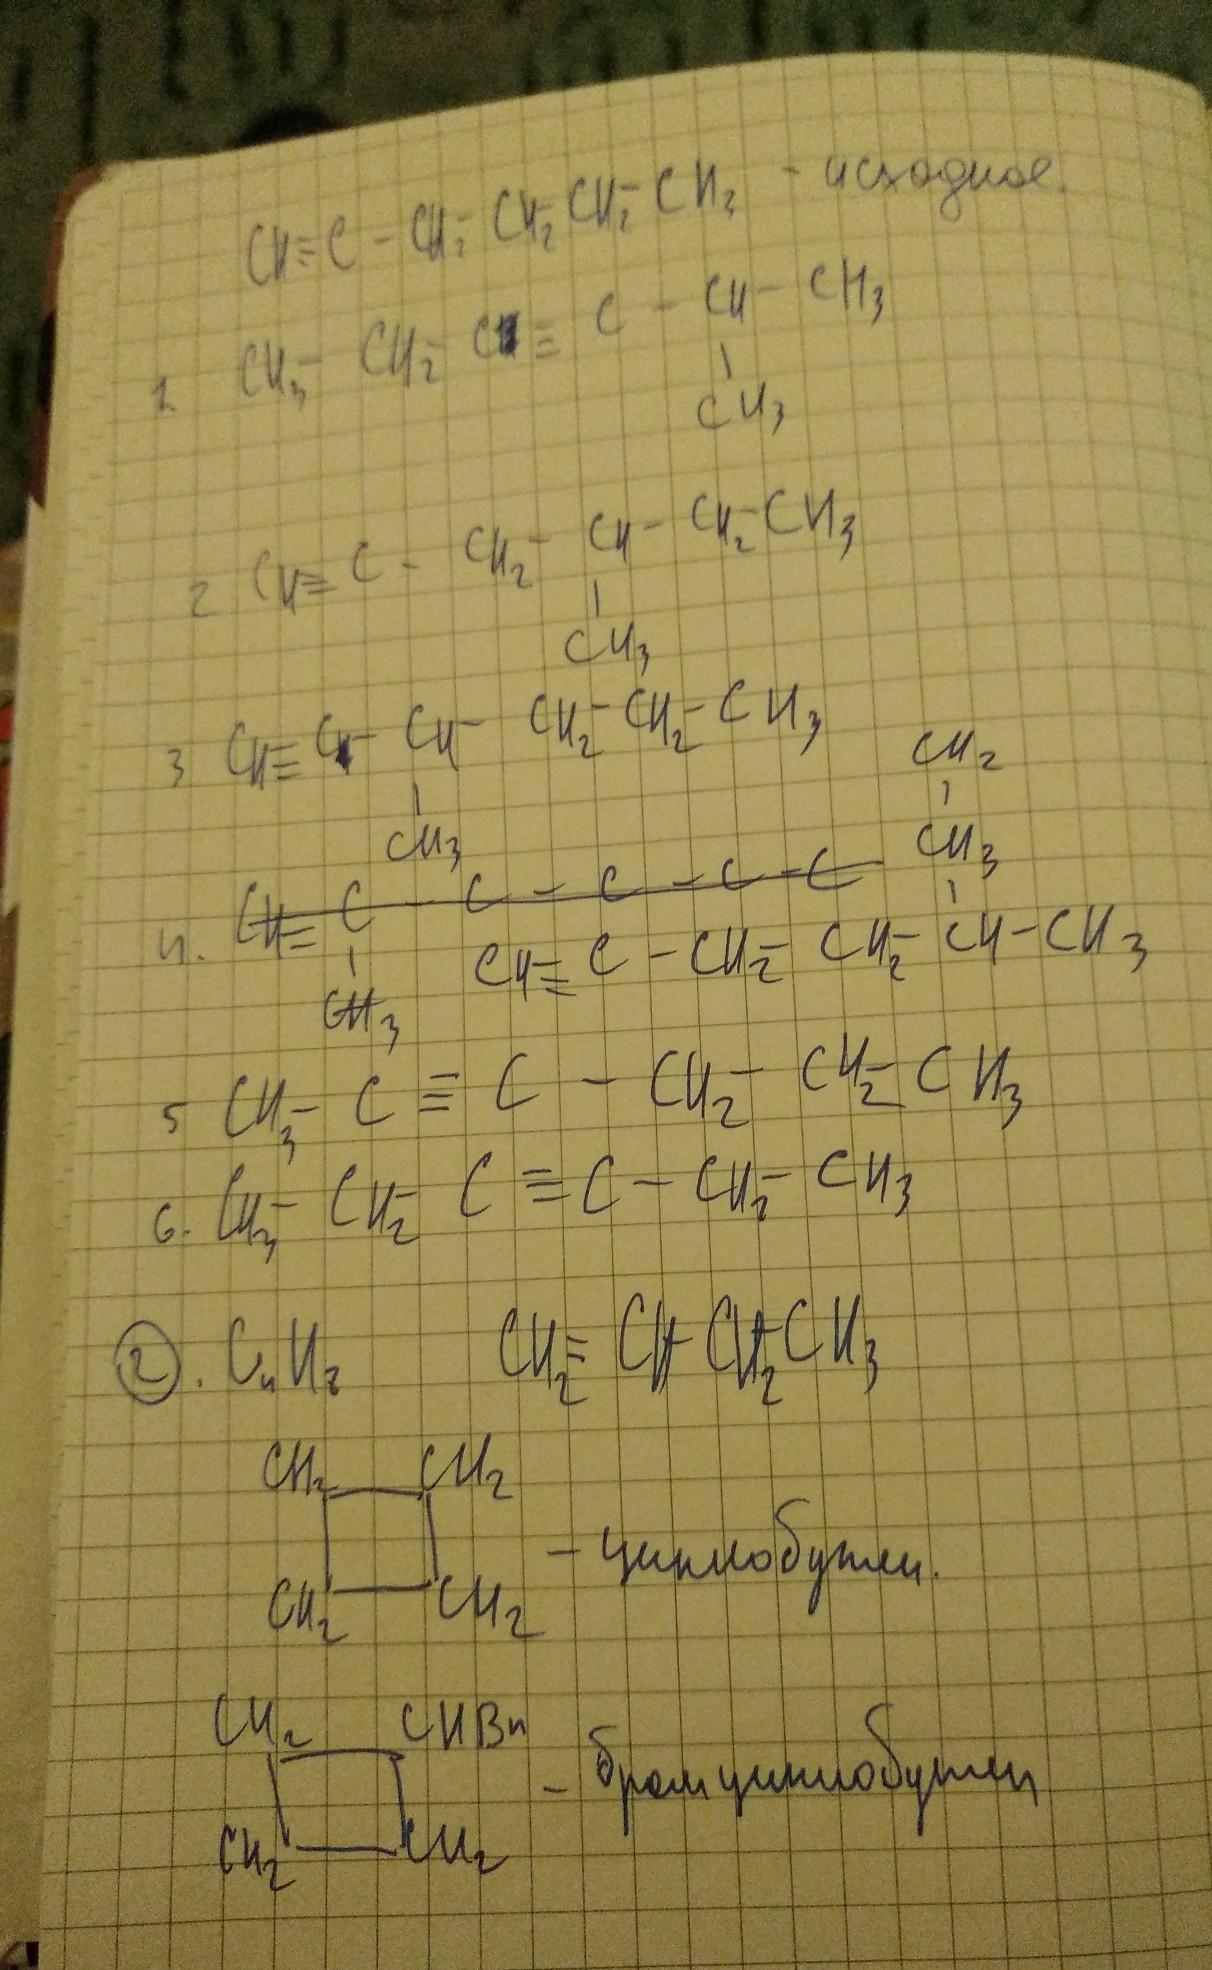 CH≡C-CH₂-CH₂-CH₂-CH₃ - исходное.
1. CH₃-CH₂-C≡C-CH-CH₃
CH₃
2 CH≡C-CH₂-CH-CH₂-CH₃
CH₃
3 CH≡C-CH-CH₂-CH₂-CH₃
CH₃
CH₂
CH₃
4. CH≡C-C-C-C-C
CH₃
CH≡C-CH₂-CH₂-CH-CH₃
5 CH₃-C≡C-CH₂-CH₂-CH₃
6. CH₃-CH₂-C≡C-CH₂-CH₃
2. C₄H₈ CH₂=CH-CH₂-CH₃
CH₂ CH₂
- циклобутан.
CH₂ CH₂
CH₂ CHBr
- бромциклобутан
CH₂ CH₂